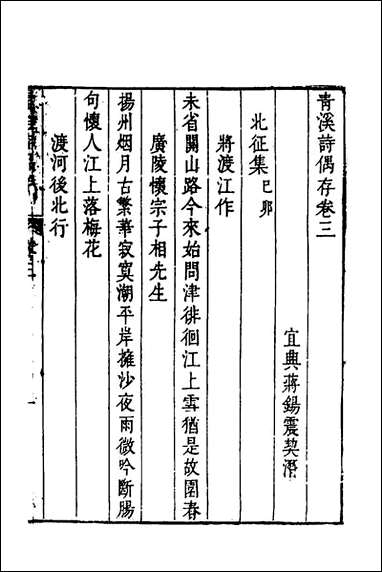 青溪詩偶存卷三
宜興蔣錫震契潛
北征集己卯
將渡江作
未省關山路今來始問津徘徊江上雪猶是故園春
廣陵懷宗子相先生
揚州烟月古繁華寂寞湖平岸擁沙夜雨微吟斷腸
句懷人江上落梅花
渡河後北行